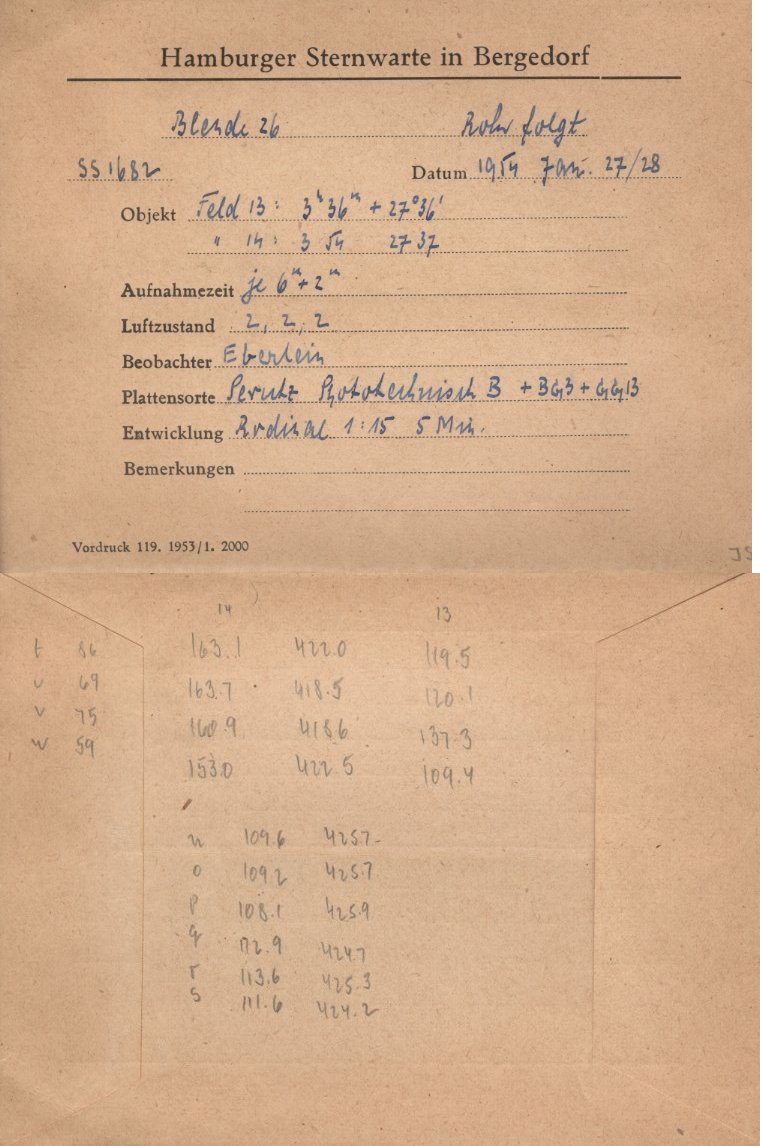 Hamburger Sternwarte in Bergedorf
Blende 26 Rohr folgt
SS1682 Datum 1954 Jan. 27/28
Objekt Feld 13: 3ʰ36ᵐ + 27°36'
" 14: 3 54 27 37
Aufnahmezeit je 6ᵐ + 2ᵐ
Luftzustand 2, 2, 2
Beobachter Eberlein
Plattensorte Perutz Phototechnisch B + BG3 + GG13
Entwicklung Rodinal 1:15 5 Min.
Bemerkungen
Vordruck 119. 1953/1. 2000
JS
14 13
t 86 163.1 422.0 119.5
u 69 163.7 418.5 120.1
v 75 160.9 418.6 137.3
w 59 153.0 422.5 109.4
n 109.6 425.7
o 109.2 425.7
p 108.1 425.9
q 112.9 424.7
r 113.6 425.3
s 111.6 424.2